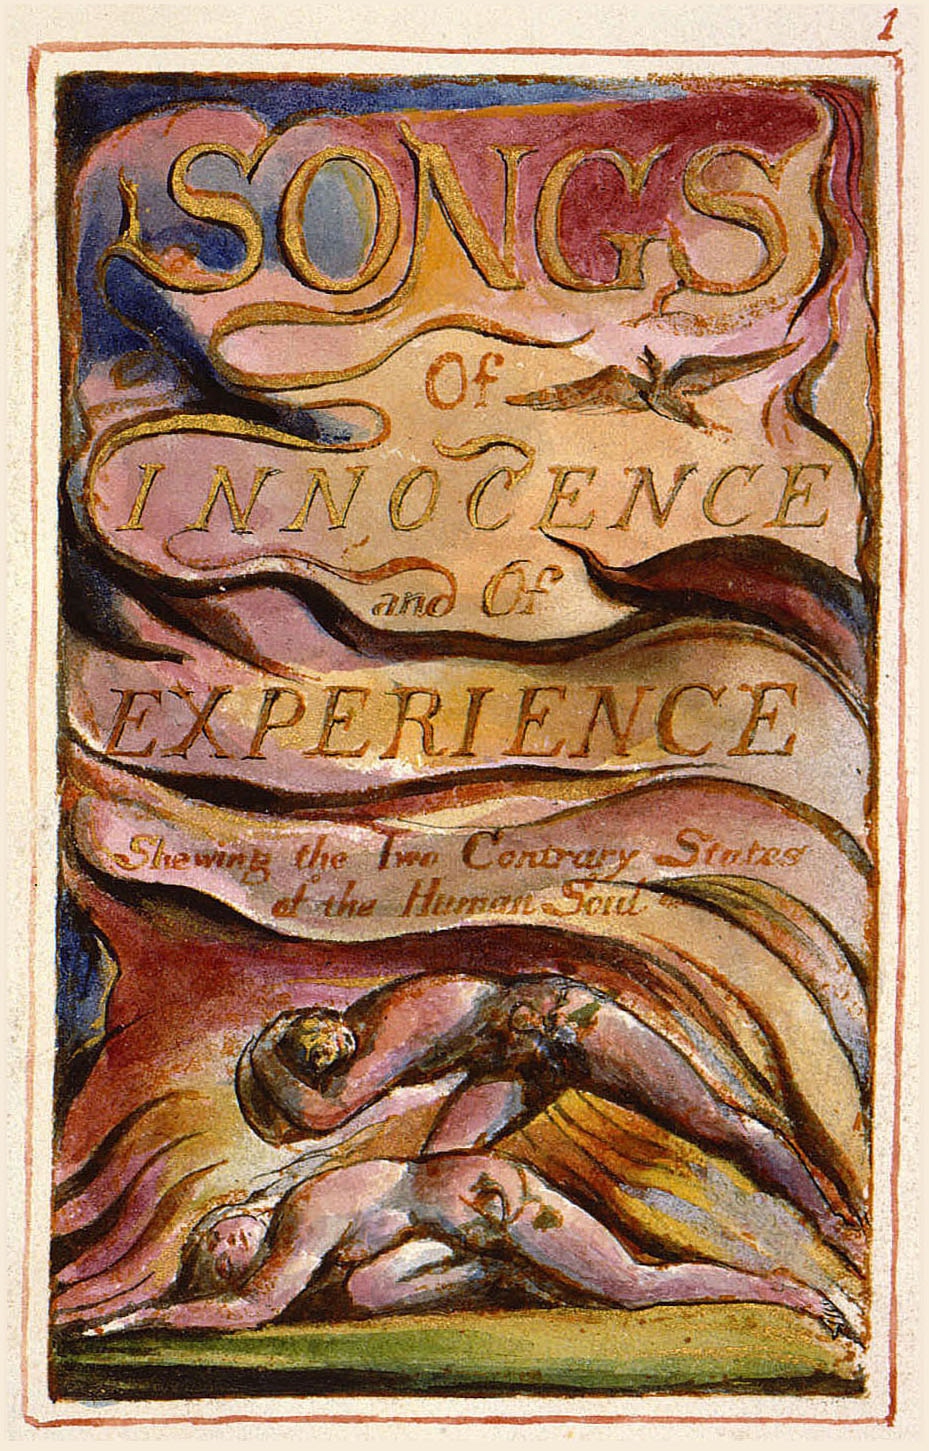 1
SONGS
Of
INNOCENCE
and Of
EXPERIENCE
Shewing the Two Contrary States
of the Human Soul